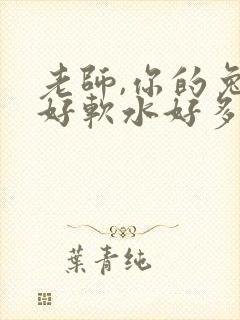 老師,你的兔
好軟水好多
葉青純